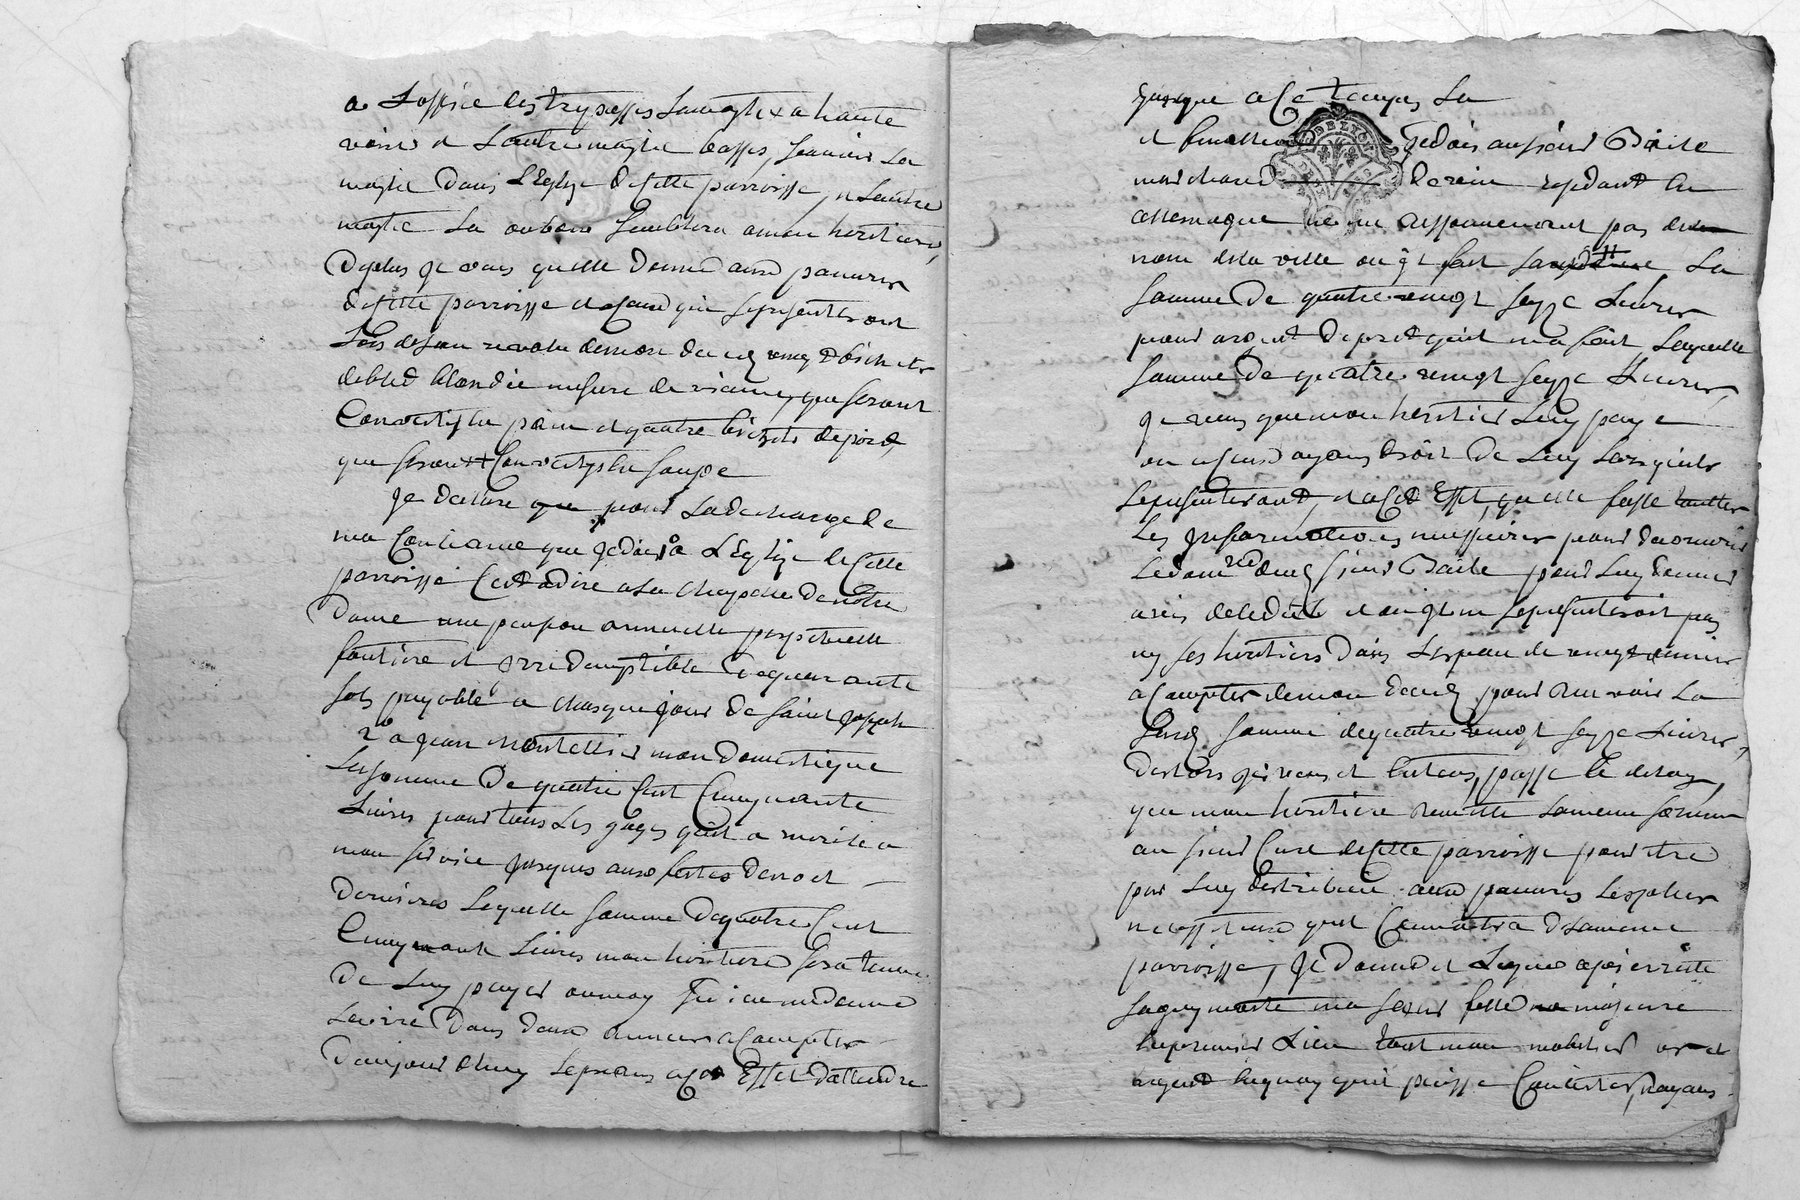 a L'office des trepasses l'une glise a haute
voix et l'autre messe basse, scavoir la
messe dans L'Eglise de cette parroisse, et l'autre
messe la ou bon semblera a mon heritiere,
De plus je veus quelle donne aux pauvres
de cette parroisse et a ceux qui se presenteront
Lors de l'an revolu de mon deced vingt bichets
de bled blondée mesure de vienne, que seront
convertis en pain et quatre bichets de pois
que seront convertys en soupe
Je declare que pour La decharge de
ma Conciance que je dois 1° a L'Eglise de cette
parroisse C'est a dire a la chapelle de nôtre
Dame une pension annuelle perpetuelle
fonciere et irredemptible de quarante
sols payable a chasque jour de saint joseph
2° a jean montellier mon domestique
La somme De quatre Cent Cinquante
Livres pour tous Les gages qu'il a merité a
mon service jusques aux festes de noel
Dernieres Laquelle somme de quatre Cent
Cinquante Livres mon heritiere sera tenue
De Luy payer au moy
Dans deux annees a Compter
D'aujourd'huy Le prians a cet Effet d'attendre
jusque a Ce temps La
et Je dois au sieur Baile
marchand resident en
allemagne ne me ressouvenant pas du
nom de la ville ou il fait sa La
somme De quatre vingt seize Livres
pour argent de pret qu'il m'a fait, Laquelle
somme De quatre vingt seize Livres,
je veus que mon heritier Luy paye
ou a ceus ayans droit De Luy Lorsqu'ils
se presenteront, et a cet Effet, quelle fasse toutes
Les informations necessaires pour decouvrir
Le dud sieur Baile pour Luy donner
avis de le dit et ou il ne se presenteroit pas
ny ses heritiers Dans L'espace de vingt années
a compter de mon deced, pour recevoir La
susd. somme de quatre vingt seize Livres,
Deslors je veus et entens, passé le delay
que mon heritiere remette La meme somme
au sieur Curé de cette parroisse pour etre
par Luy distribuée aux pauvres Les plus
necessiteux qu'il Connoitra de la meme
parroisse, Je donne et Legue a pierrette
jaquemote ma soeur fille majeure
en premier Lieu tout mon mobilier or et
argent en quoy qu'il puisse Consister, n'ayans